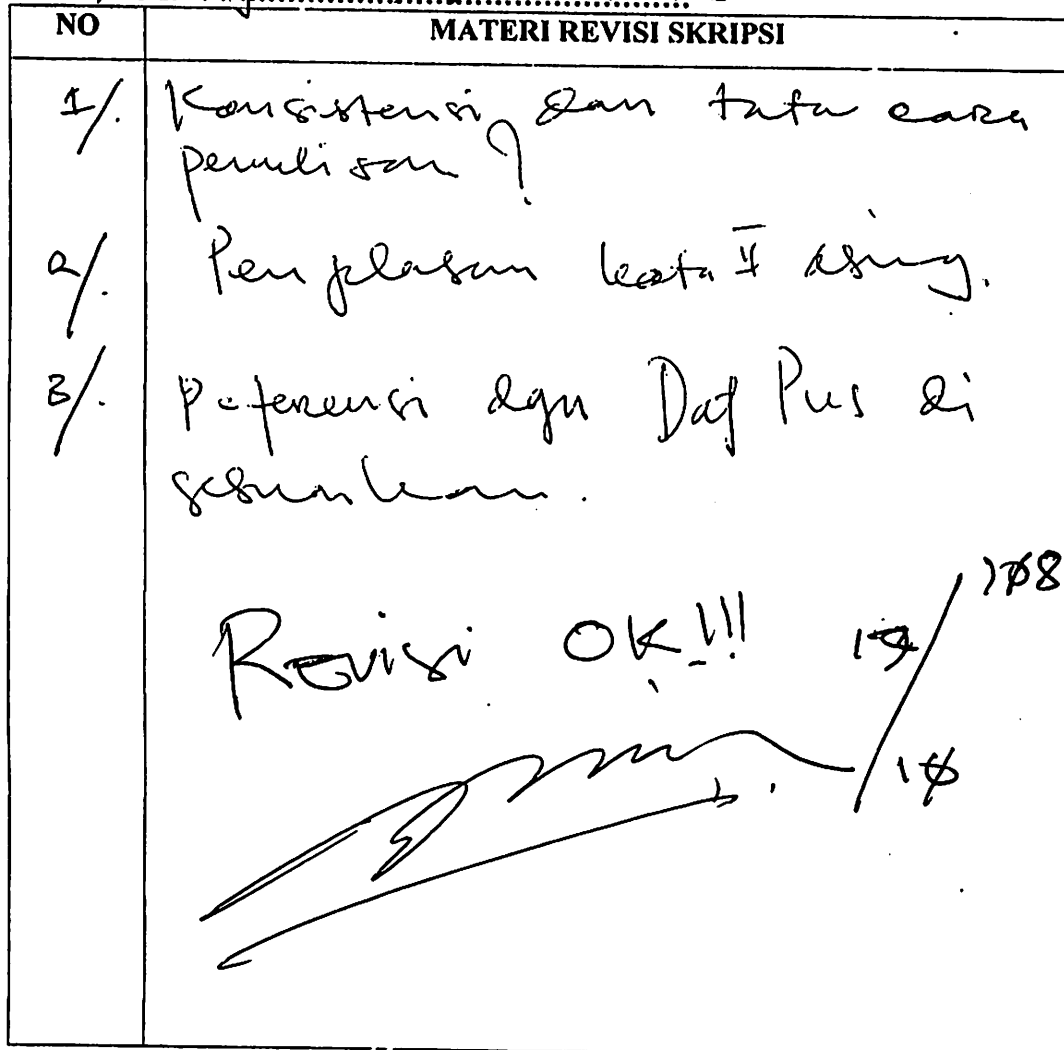 NO MATERI REVISI SKRIPSI
1/. Konsistensi dan tata cara
penulisan ?
2/. Penjelasan kata II asing.
3/. Referensi dgn Daf Pus di
sesuaikan.
Revisi OK!!!